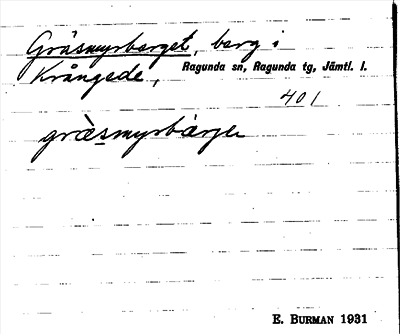 Gräsmyrberget, berg i
Krångede, Ragunda sn, Ragunda tg, Jämtl. l.
401
gräsmyrbärje
E. BURMAN 1931